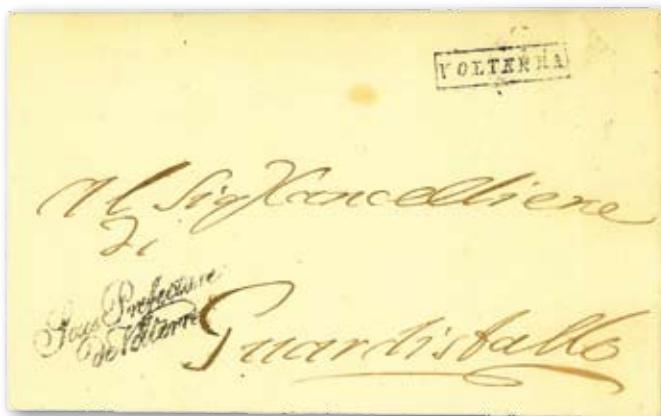 VOLTERRA
Al Sig Cancelliere
Di
Sous Prefecture
de Volterre
Guardistallo